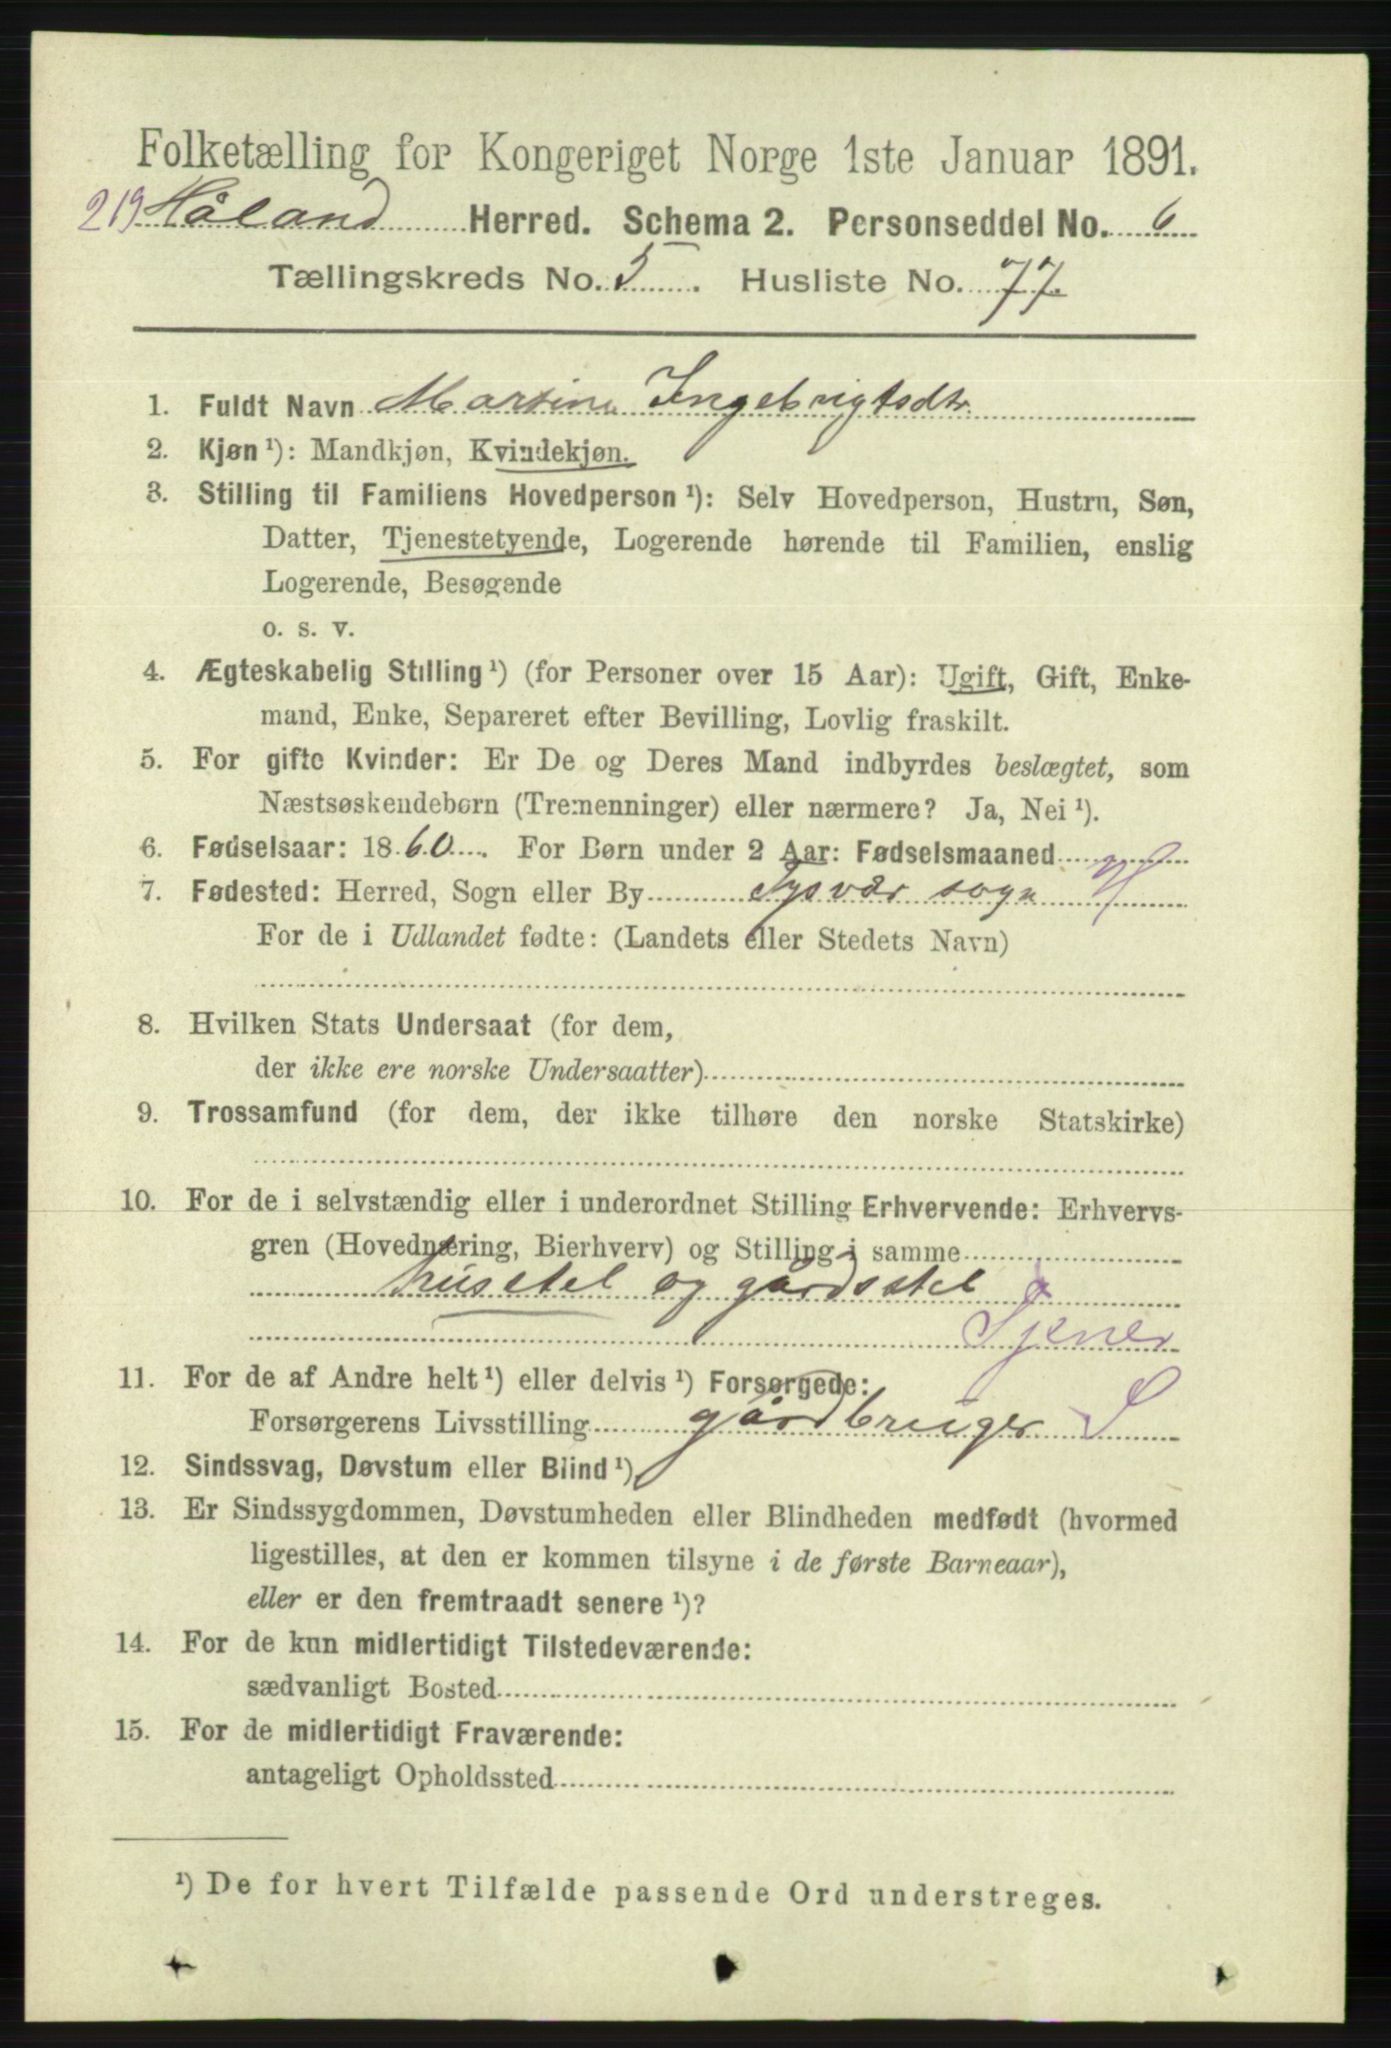 Folketælling for Kongeriget Norge 1ste Januar 1891.
219 Håland Herred. Schema 2. Personseddel No. 6
Tællingskreds No. 5. Husliste No. 77.
1. Fuldt Navn Martine Ingebrigtsdtr.
2. Kjøn ¹): Mandkjøn, Kvindekjøn.
3. Stilling til Familiens Hovedperson ¹): Selv Hovedperson, Hustru, Søn,
Datter, Tjenestetyende, Logerende hørende til Familien, enslig
Logerende, Besøgende
o. s. v.
4. Ægteskabelig Stilling ¹) (for Personer over 15 Aar): Ugift, Gift, Enke-
mand, Enke, Separeret efter Bevilling, Lovlig fraskilt.
5. For gifte Kvinder: Er De og Deres Mand indbyrdes beslægtet, som
Næstsøskendebørn (Tremenninger) eller nærmere? Ja, Nei ¹).
6. Fødselsaar: 1860. For Børn under 2 Aar: Fødselsmaaned
7. Fødested: Herred, Sogn eller By Tysvær sogn
For de i Udlandet fødte: (Landets eller Stedets Navn)
8. Hvilken Stats Undersaat (for dem,
der ikke ere norske Undersaatter)
9. Trossamfund (for dem, der ikke tilhøre den norske Statskirke)
10. For de i selvstændig eller i underordnet Stilling Erhvervende: Erhvervs-
gren (Hovednæring, Bierhverv) og Stilling i samme
husstel og gårdsstel
Tjener
11. For de af Andre helt ¹) eller delvis ¹) Forsørgede:
Forsørgerens Livsstilling gårdbruger S
12. Sindssvag, Døvstum eller Blind ¹)
13. Er Sindssygdommen, Døvstumheden eller Blindheden medfødt (hvormed
ligestilles, at den er kommen tilsyne i de første Barneaar),
eller er den fremtraadt senere ¹)?
14. For de kun midlertidigt Tilstedeværende:
sædvanligt Bosted
15. For de midlertidigt Fraværende:
antageligt Opholdssted
¹) De for hvert Tilfælde passende Ord understreges.